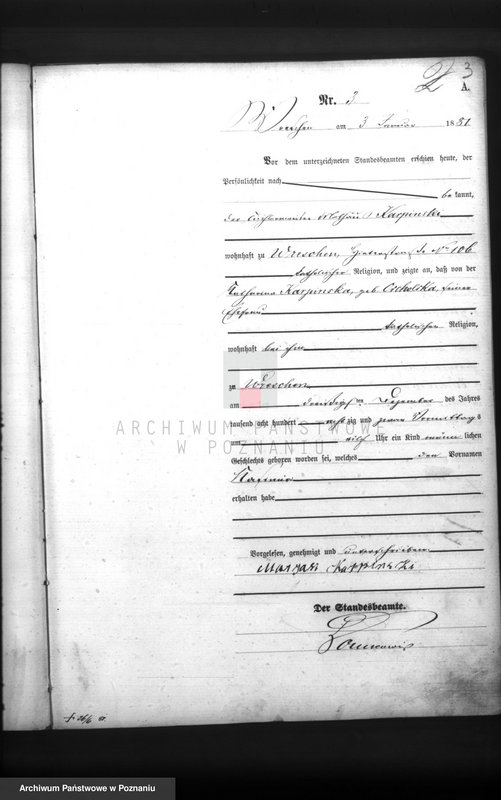 3
A.
Nr. 3
Wreschen am 3 Januar 1881.
Vor dem unterzeichneten Standesbeamten erschien heute, der
Persönlichkeit nach
bekannt,
der Karpinski
wohnhaft zu Wreschen, No 106
katholischer Religion, und zeigte an, daß von der
Katharina Karpinska, geb. seiner
Ehefrau
katholischer Religion,
wohnhaft bei ihm
zu Wreschen
am Dezember des Jahres
tausend acht hundert achtzig und Vormittags
um Uhr ein Kind männlichen
Geschlechts geboren worden sei, welches den Vornamen
erhalten habe
Vorgelesen, genehmigt und unterschrieben
Karpinski
Der Standesbeamte.
ARCHIWUM PAŃSTWOWE
W POZNANIU
Archiwum Państwowe w Poznaniu